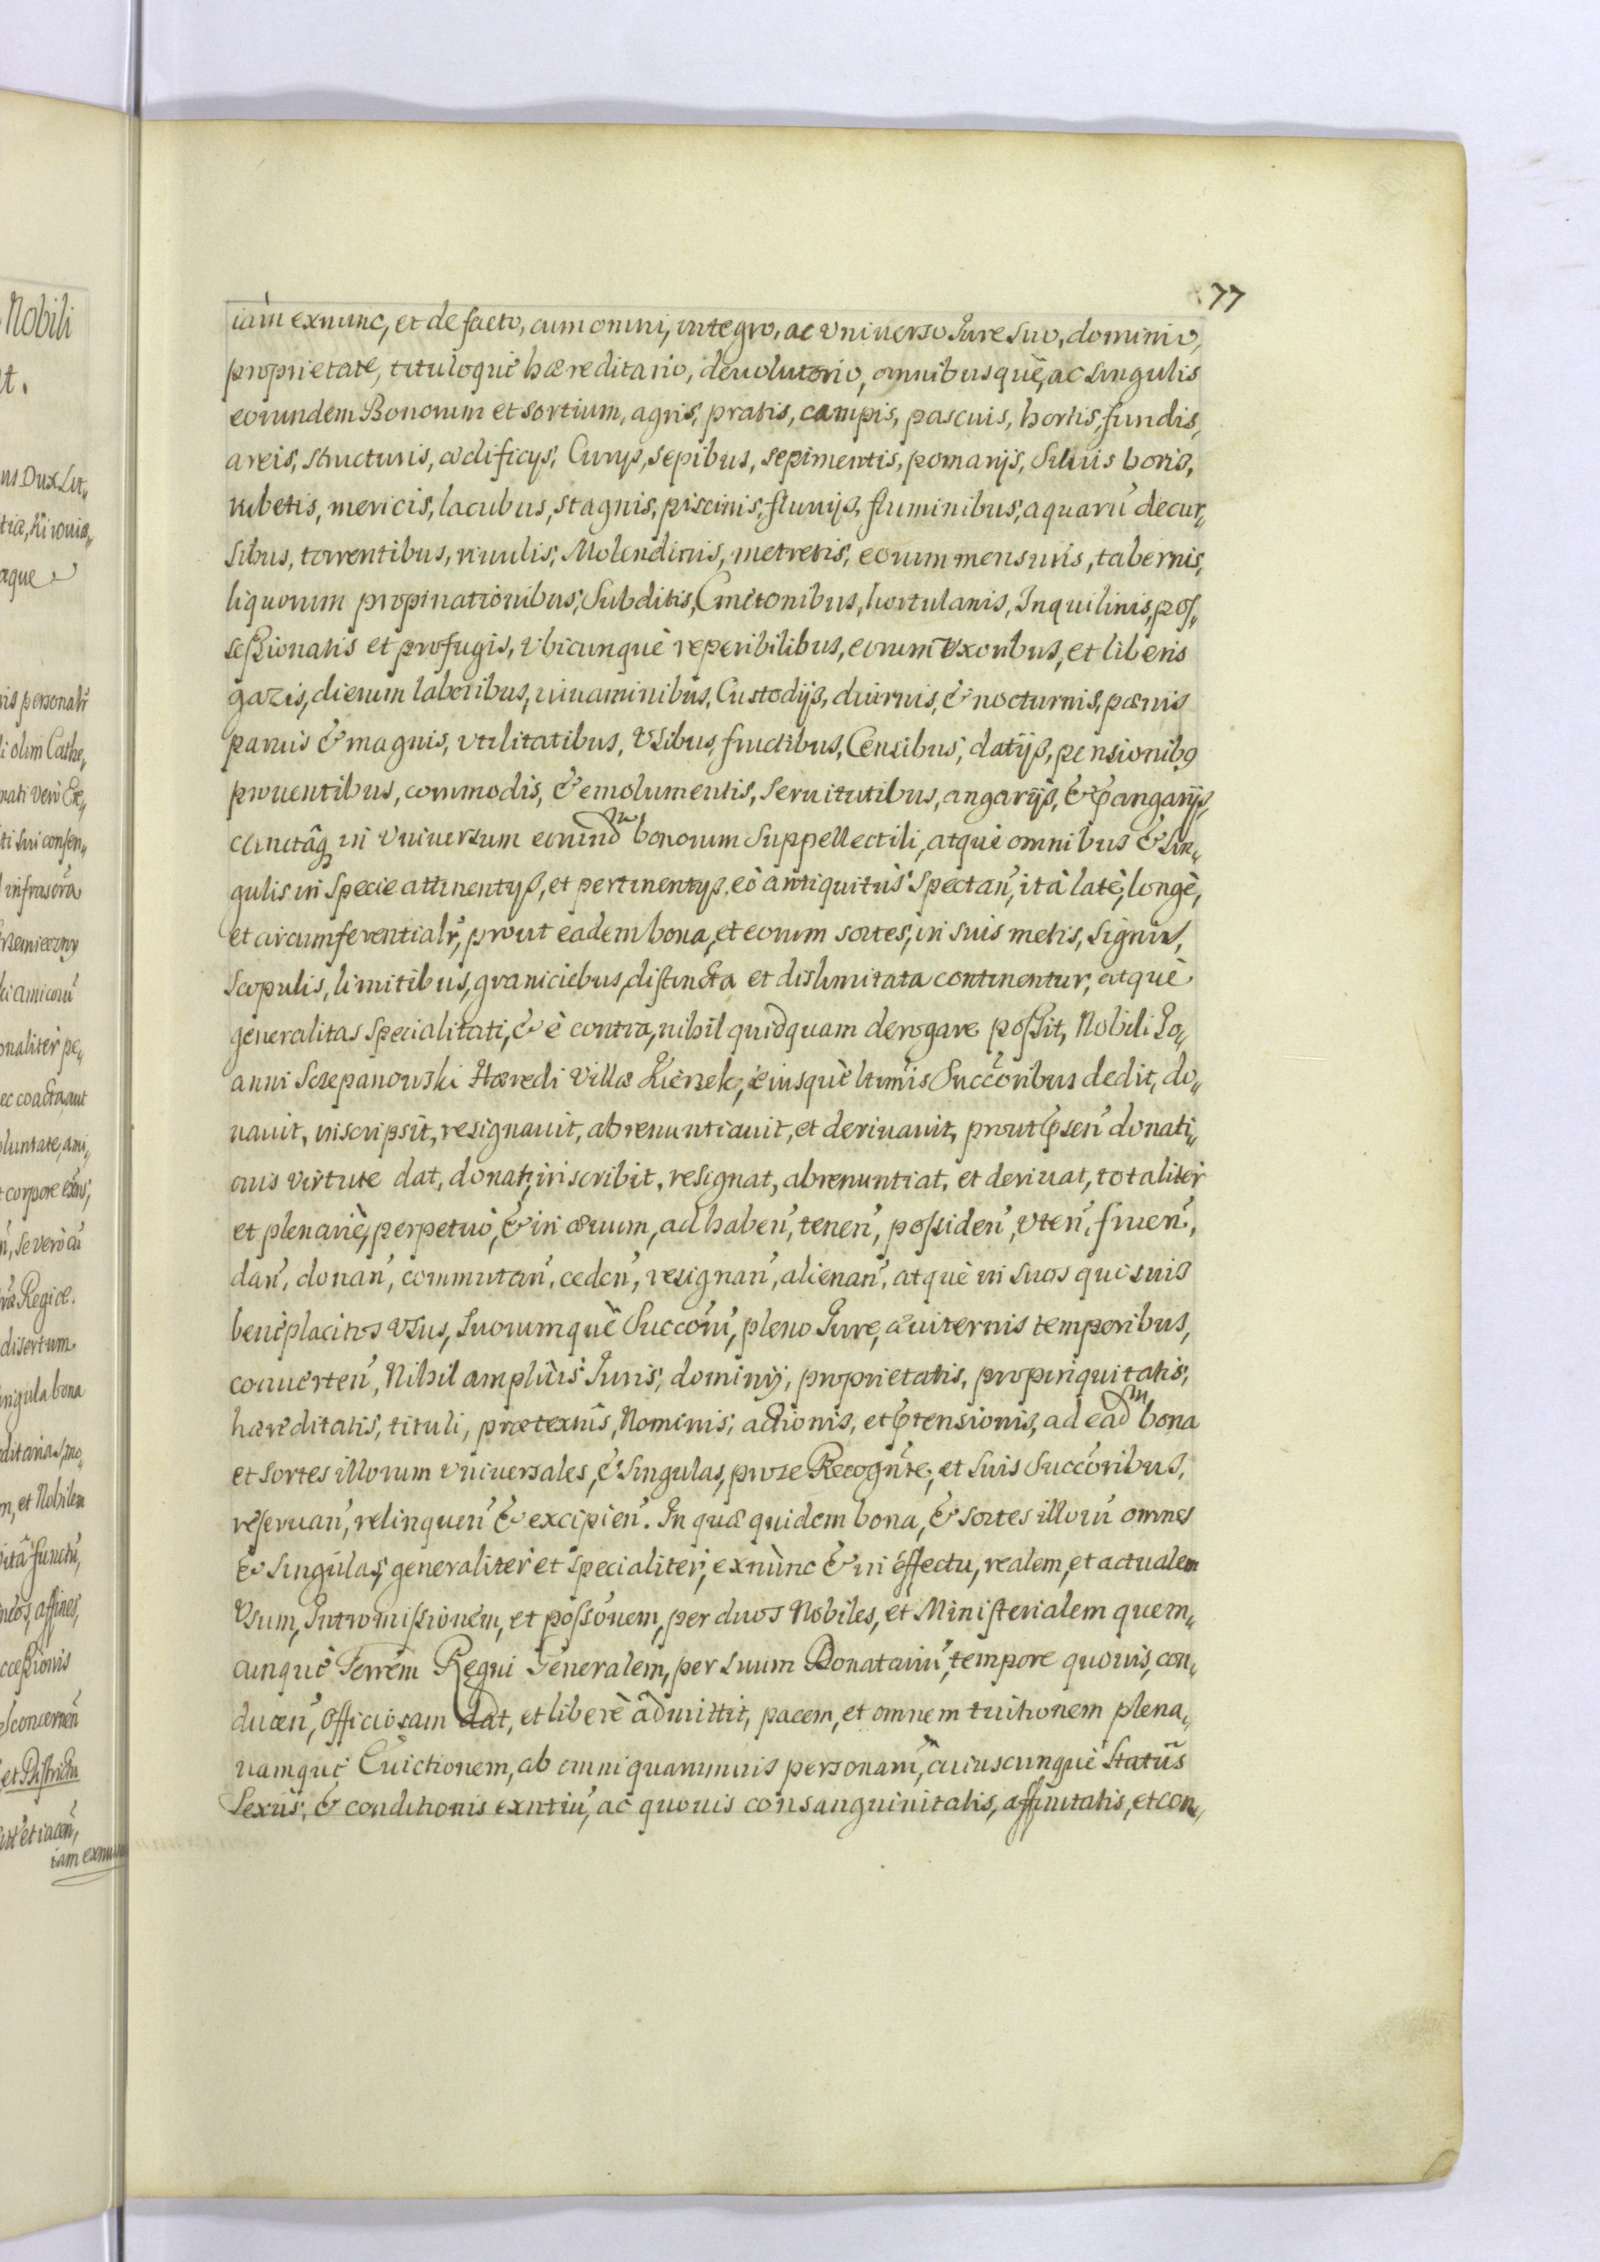 77
iàm exnunc, et de facto, cum omni, integro, ac vniuerso Jure suo, dominio,
proprietate, tituloquè hæreditario, deuolutorio, omnibusquè, ac singulis
eorundem Bonorum et sortium, agris, pratis, campis, pascuis, hortis, fundis,
areis, structuris, ædificijs, Curijs, sepibus, sepimentis, pomarijs, Siluis boris,
rubetis, mericis, lacubus, stagnis, piscinis, fluuijs, fluminibus, aquarū decur„
sibus, torrentibus, riuulis, Molendinis, metretis, eorum mensuris, tabernis,
liquorum propinationibus, Subditis, Cmetonibus, hortulanis, Inquilinis, pos„
sessionatis et profugis, vbicunquè reperibilibus, eorum Vxoribus, et liberis
gazis, dierum laboribus, iuuaminibus, Custodijs, diurnis, & nocturnis, pænis
paruis & magnis, vtilitatibus, Vsibus, fructibus, Censibus, datijs, pensionibꝰ
prouentibus, commodis, & emolumentis, seruitutibus, angarijs, & ꝑangarijs,
cunctâqꝫ in vniuersum eorundᵐ bonorum Suppellectili, atquè omnibus & sin„
gulis in specie attinentijs, et pertinentijs, eò antiquitùs spectan̄, ità latè, longè,
et circumferentialr̄, prout eadem bona, et eorum sortes, in suis metis, signis,
scopulis, limitibus, graniciebus, distincta et dislimitata continentur, atquè
generalitas specialitati, & è contra, nihil quidquam derogare possit, Nobili Jo„
anni Sczepanowski Hæredi Villæ Kiersek, eiusquè ltimis Succōribus dedit, do„
nauit, inscripsit, resignauit, abrenuntiauit, et deriuauit, prout ꝑsen̄ donati„
onis virtute dat, donat, inscribit, resignat, abrenuntiat, et deriuat, totalitèr
et plenariè, perpetuò, & in æuum, ad haben̄, tenen̄, possiden̄, vten̄, fruen̄,
dan̄, donan̄, commutan̄, ceden̄, resignan̄, alienan̄, atquè in suos qui suis
benèplacitos vsus, suorumquè Succōrū, pleno Jure, æuiternis temporibus,
conuerten̄, Nihil ampliùs Juris, dominij, proprietatis, propinquitatis,
hæreditatis, tituli, prætextûs, Nominis, actionis, et ꝑtensionis, ad eadᵐ bona
et sortes illorum vniuersales, & singulas, pro se Recogn̄te, et suis Succōribus,
reseruan̄, relinquen̄ & excipien̄. In quæ quidem bona, & sortes illorū omnes
& singulas, generalitèr et specialitèr, exnùnc & in effectu, realem, et actualem
Vsum, Intromissionem, et possōnem, per duos Nobiles, et Ministerialem quem„
cunquè Terrēm Regni Generalem, per suum Donatariū, tempore quouis, con„
ducen̄, officiosam dat, et liberè admittit, pacem, et omnem tuitionem plena„
riamquè Euictionem, ab omni quarumuis personarū, cuiuscunquè Statûs
Sexûs, & conditionis exn̄tiū, ac quouis consanguinitatis, affinitatis, et con„